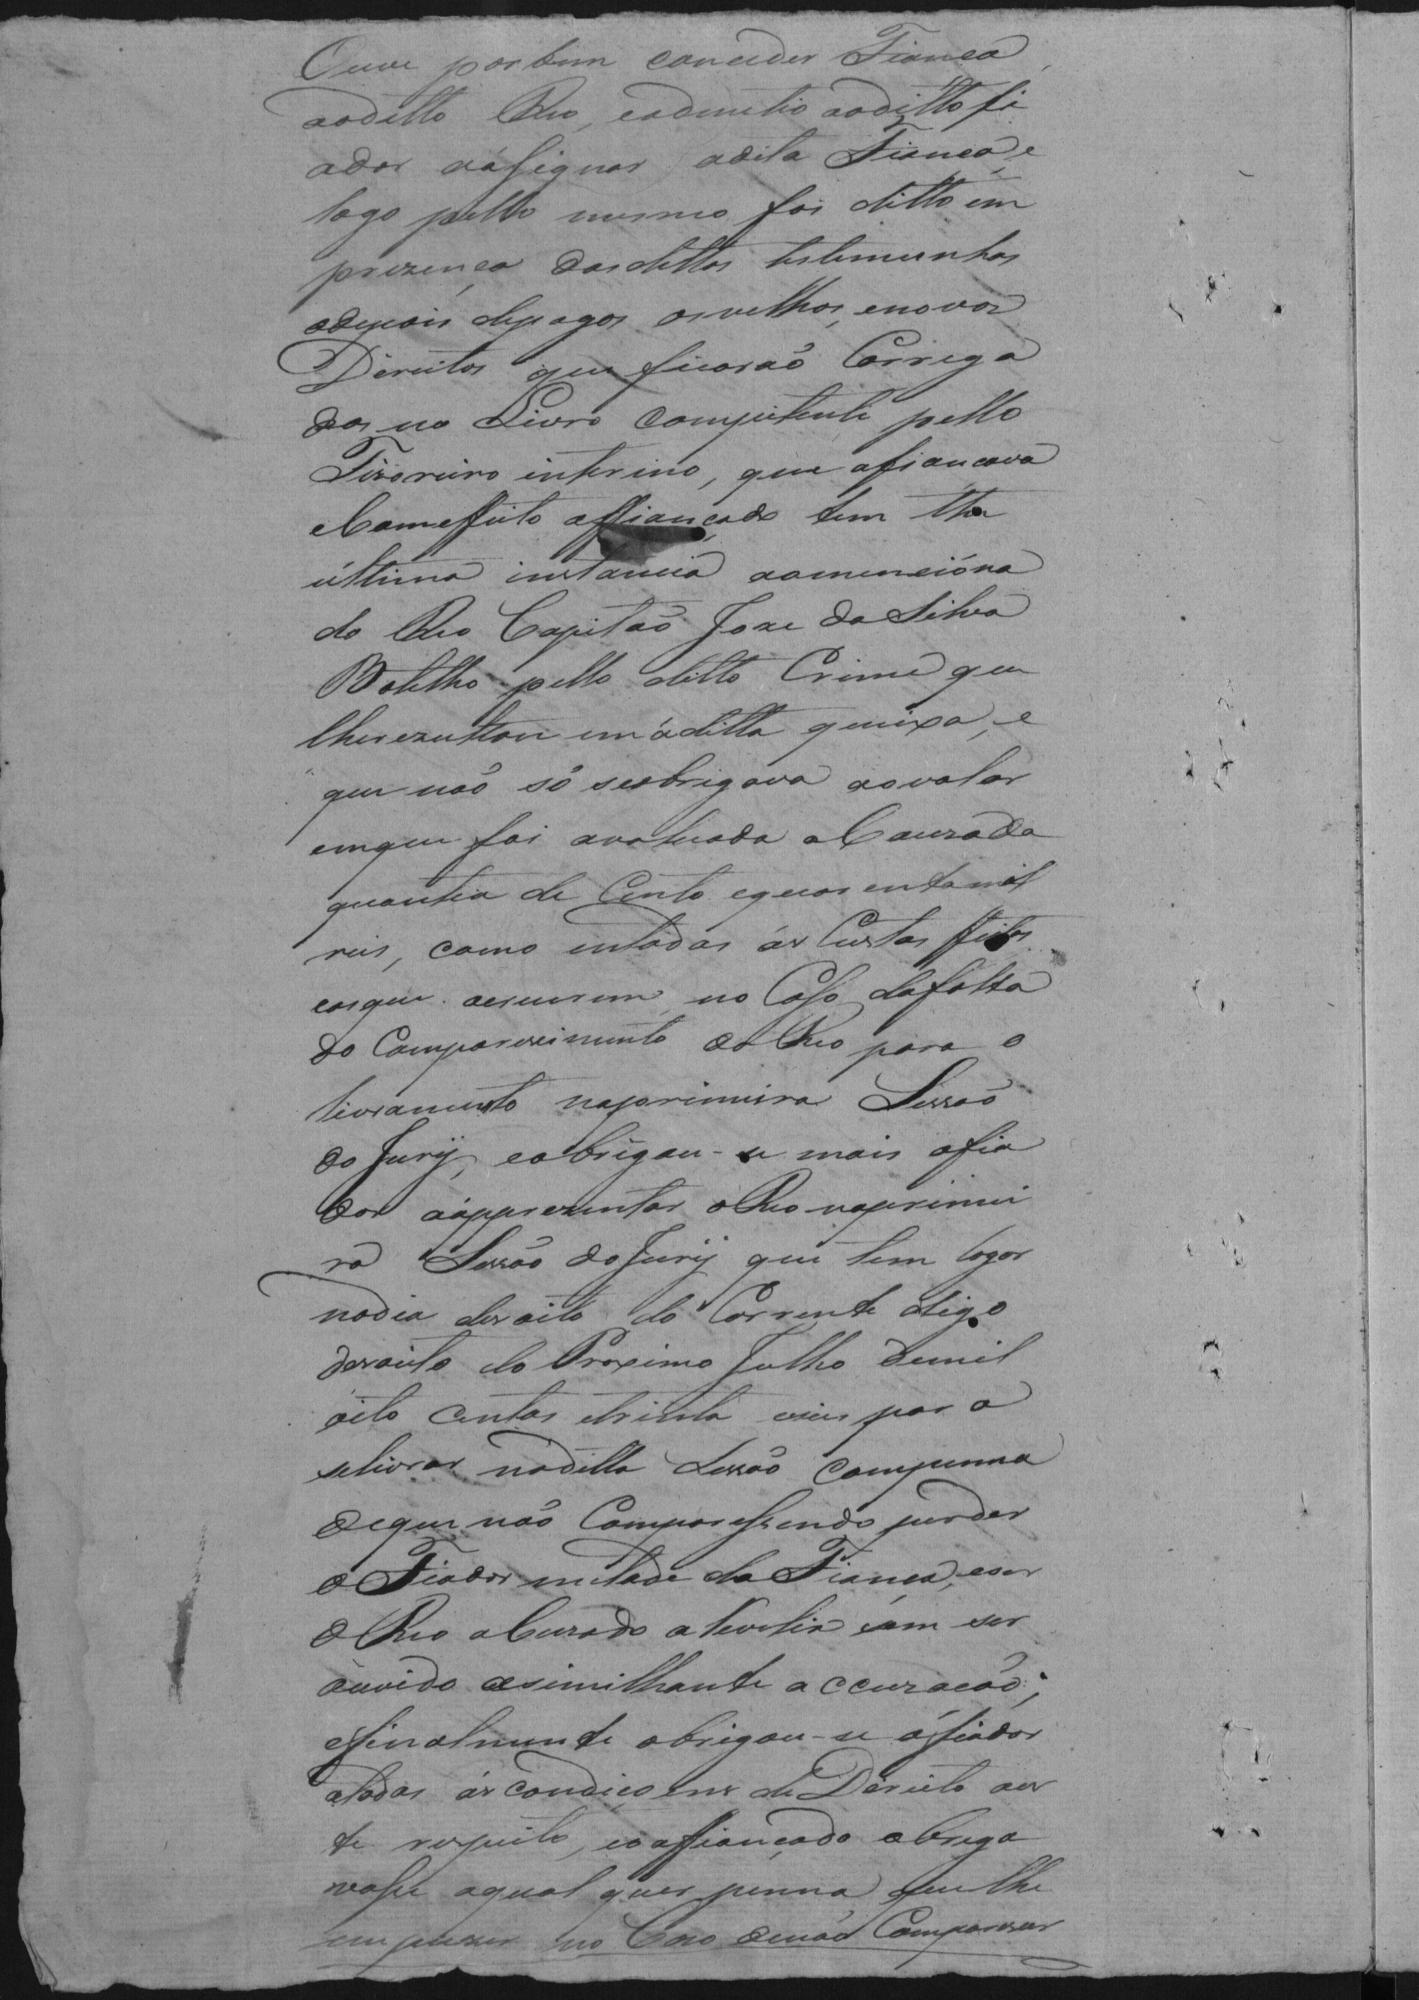 Ouve por bem conceder Fiança
aoditto Reo, eadmetio aoditto fi
ador aáfignar adita Fiança, e
logo pello mesmo foi ditto em
prezença dasdittas testemunhas
edepois depagos osvelhos, enovos
Direitos que ficarão Carrega
dos no Livro Competente pello
Tizoreiro interino, que afiançava
eComeffeito affiançado tem thé
ultima instancia aomencióna
do Reo Capitão Joze da Silva
Botelho pello ditto Crime que
lherezultou em áditta queixa, e
que não só seobrigava aovalor
emque foi avaluada aCauzada
quantia de Cento equarentamil
reis, como entodas ás Custas feitas
easque acrecerem, no Cafo dafalta
do Comparecimento do Reo para o
livramento naprimeira Sessão
do Jurÿ, eobrigou-se mais ofia
dor aápprezentar oReo naprimei
ra Sessão do Jurÿ que tem logar
nodia dezoito do Corrente digo
dezoito do Proximo Julho demil
oito centos etrinta eseis para
selivrar naditta Sessão compenna
dequenão Comparefsendo perder
o Fiador metade da Fiança, eser
o Reo aCuzado a Revelia sem ser
ouvido asimilhante accuzacão;
efinalmente obrigou-se ófiador
atodas ás condiçoens de Direito aes
te respeito, eoaffiançado obriga
vase aqual quer penna que lhe
empuzer no Cazo denão Comparecer